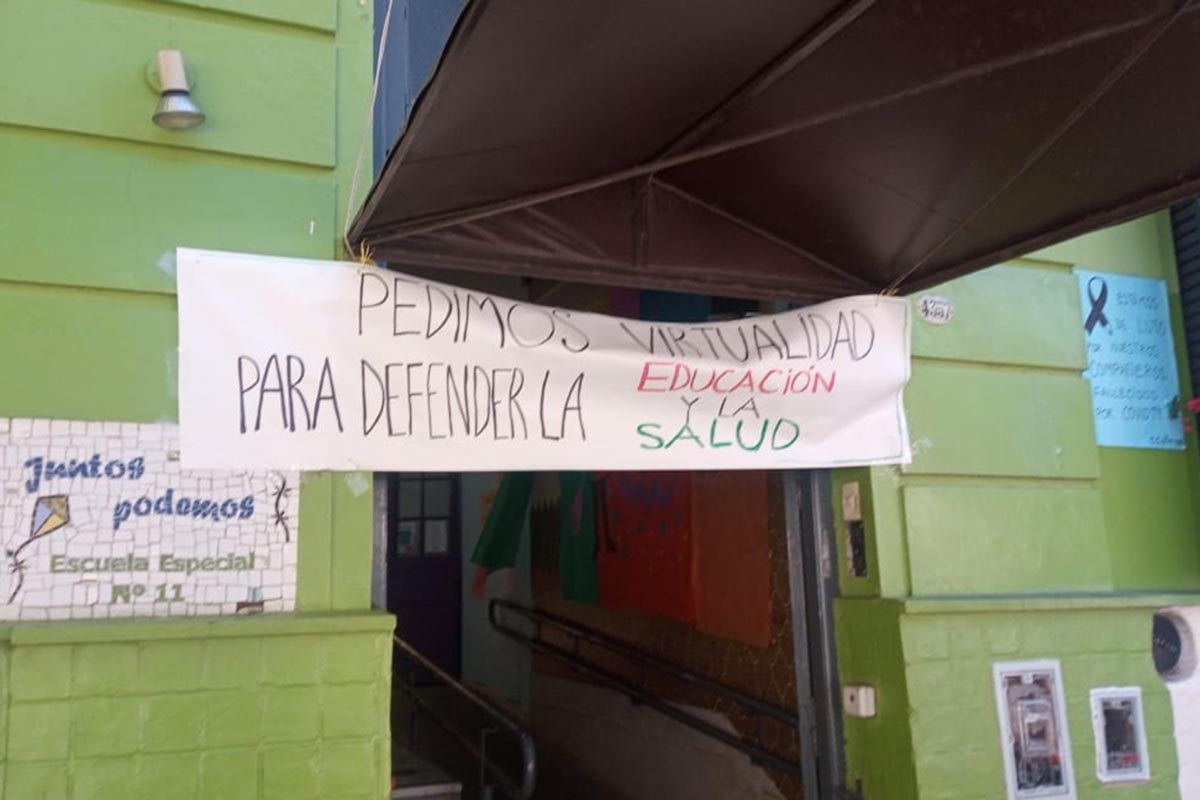 PEDIMOS VIRTUALIDAD
PARA DEFENDER LA EDUCACIÓN
Y LA
SALUD
Juntos
podemos
Escuela Especial
Nº 11
4357
ESTAMOS
DE LUTO
POR NUESTROS
COMPAÑEROS
FALLECIDOS
POR COVID19